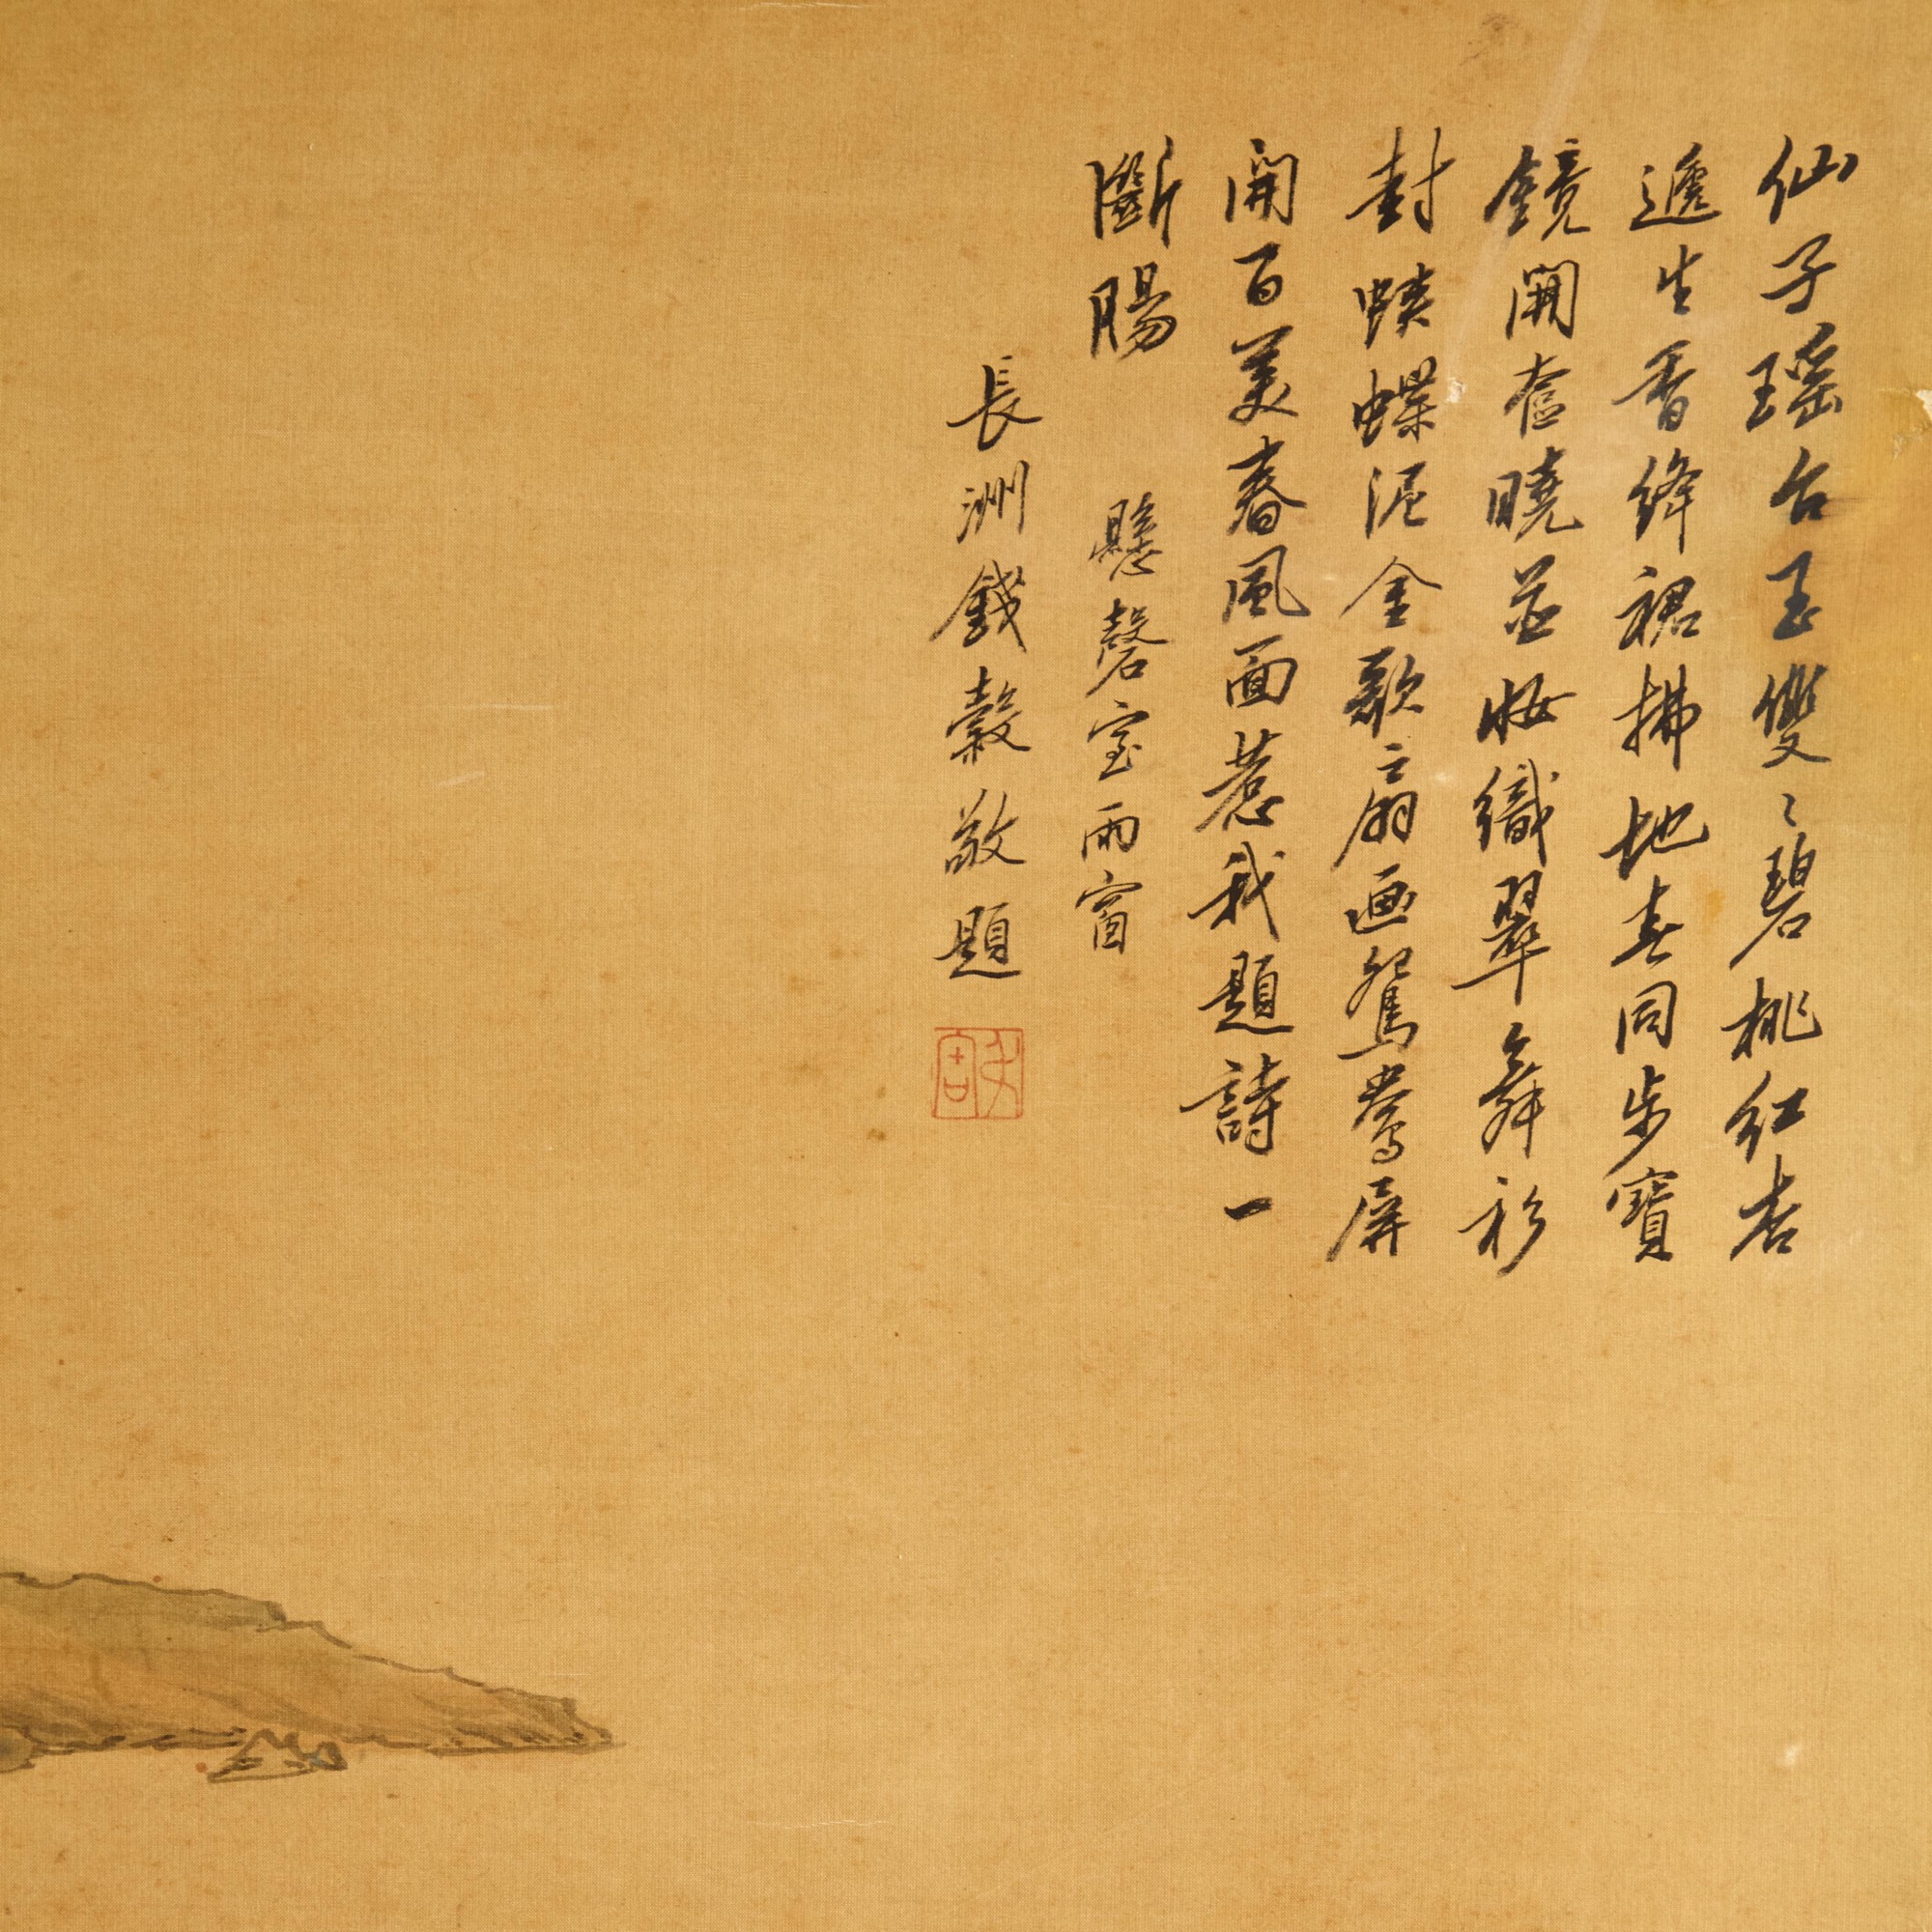 仙子瑶台玉雙〻碧桃紅杏
遞生香絳裙拂地去同步寶
鏡開奩曉並妝織翠舞衫
封蛺蝶泥金歌扇画鴛鴦屏
開百美春風面惹我題詩一
斷腸 懸磬室雨窗
長洲錢穀敬題